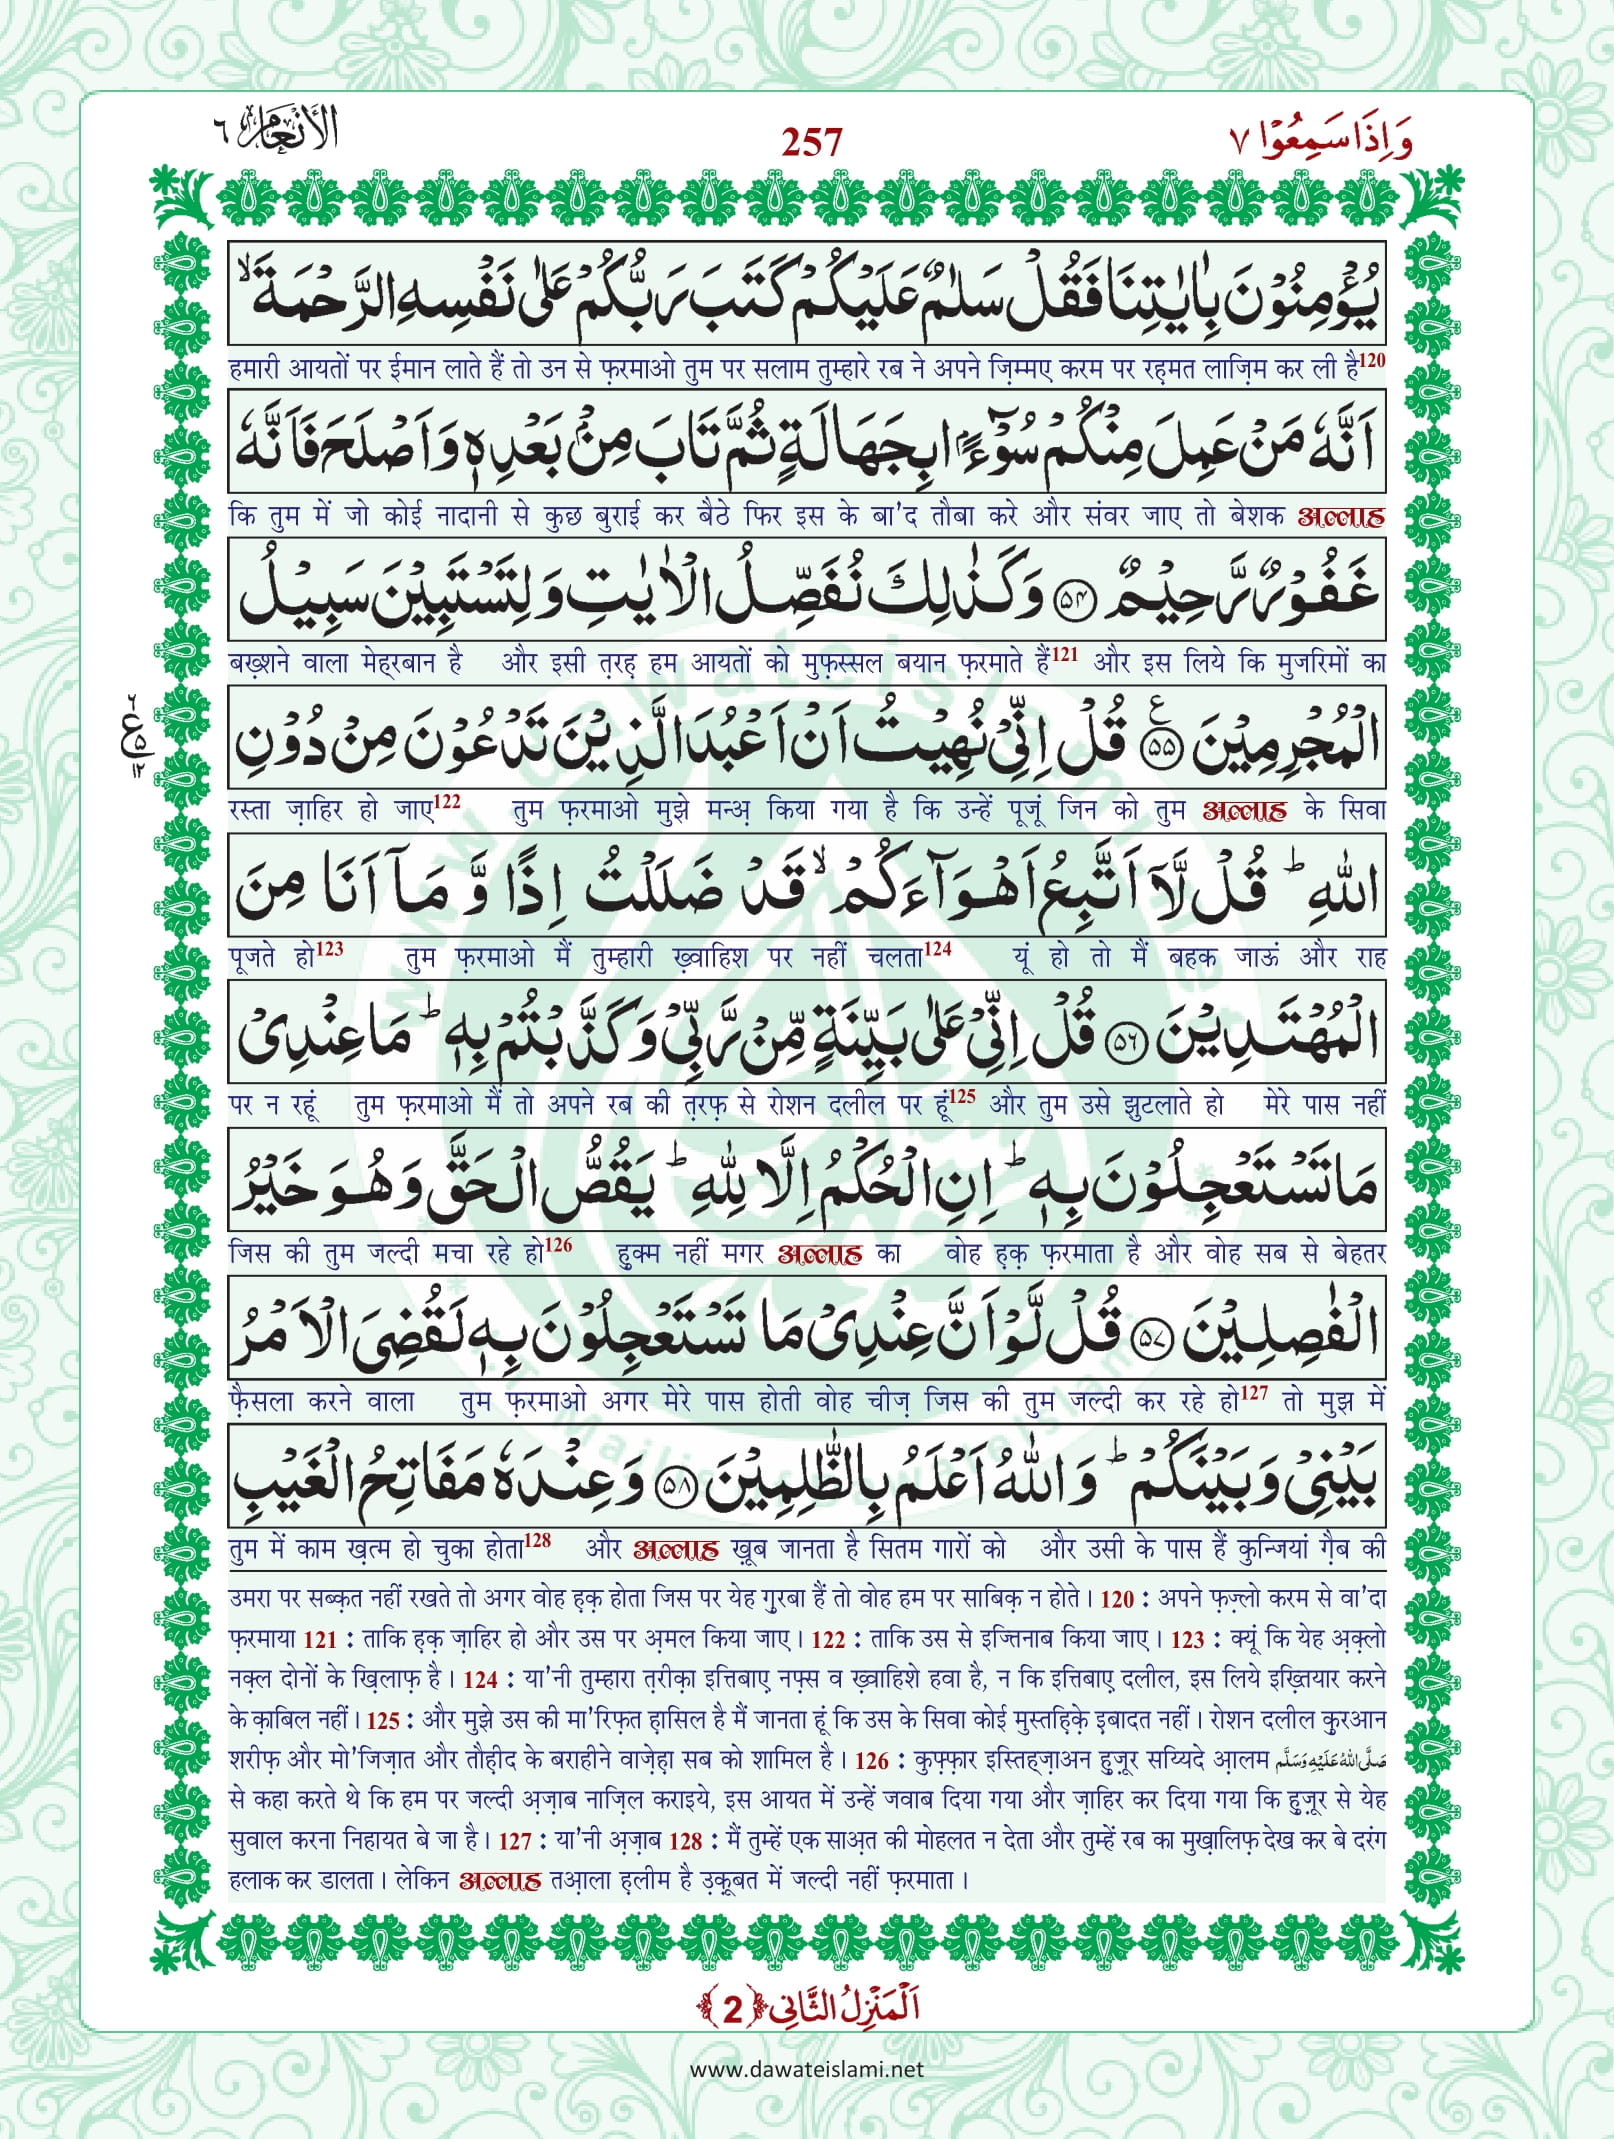 وَاِذَا سَمِعُوۡا ٧
257
الۡاَنۡعَام ٦
یُؤْمِنُوْنَ بِاٰیٰتِنَا فَقُلْ سَلٰمٌ عَلَیْكُمْ كَتَبَ رَبُّكُمْ عَلٰى نَفْسِهِ الرَّحْمَةَۙ
हमारी आयतों पर ईमान लाते हैं तो उन से फ़रमाओ तुम पर सलाम तुम्हारे रब ने अपने ज़िम्मए करम पर रह़मत लाज़िम कर ली है120
اَنَّهٗ مَنْ عَمِلَ مِنْكُمْ سُوْٓءًۢا بِجَهَالَةٍ ثُمَّ تَابَ مِنْۢ بَعْدِهٖ وَ اَصْلَحَ فَاَنَّهٗ
कि तुम में जो कोई नादानी से कुछ बुराई कर बैठे फिर इस के बा'द तौबा करे और संवर जाए तो बेशक अल्लाह
غَفُوْرٌ رَّحِیْمٌ ﴿۵۴﴾ وَ كَذٰلِكَ نُفَصِّلُ الْاٰیٰتِ وَ لِتَسْتَبِیْنَ سَبِیْلُ
बख़्शने वाला मेहरबान है और इसी त़रह़ हम आयतों को मुफ़स्सल बयान फ़रमाते हैं121 और इस लिये कि मुजरिमों का
الْمُجْرِمِیْنَ۠ ﴿۵۵﴾ قُلْ اِنِّیْ نُهِیْتُ اَنْ اَعْبُدَ الَّذِیْنَ تَدْعُوْنَ مِنْ دُوْنِ
٢ ع ۵ ١٢
रस्ता ज़ाहिर हो जाए122 तुम फ़रमाओ मुझे मन्अ़ किया गया है कि उन्हें पूजूं जिन को तुम अल्लाह के सिवा
اللّٰهِؕ قُلْ لَّاۤ اَتَّبِعُ اَهْوَآءَكُمْۙ قَدْ ضَلَلْتُ اِذًا وَّ مَاۤ اَنَا مِنَ
पूजते हो123 तुम फ़रमाओ मैं तुम्हारी ख़्वाहिश पर नहीं चलता124 यूं हो तो मैं बहक जाऊं और राह
الْمُهْتَدِیْنَ ﴿۵۶﴾ قُلْ اِنِّیْ عَلٰى بَیِّنَةٍ مِّنْ رَّبِّیْ وَ كَذَّبْتُمْ بِهٖؕ مَا عِنْدِیْ
पर न रहूं तुम फ़रमाओ मैं तो अपने रब की त़रफ़ से रोशन दलील पर हूं125 और तुम उसे झुटलाते हो मेरे पास नहीं
مَا تَسْتَعْجِلُوْنَ بِهٖؕ اِنِ الْحُكْمُ اِلَّا لِلّٰهِؕ یَقُصُّ الْحَقَّ وَ هُوَ خَیْرُ
जिस की तुम जल्दी मचा रहे हो126 हुक्म नहीं मगर अल्लाह का वोह ह़क़ फ़रमाता है और वोह सब से बेहतर
الْفٰصِلِیْنَ ﴿۵۷﴾ قُلْ لَّوْ اَنَّ عِنْدِیْ مَا تَسْتَعْجِلُوْنَ بِهٖ لَقُضِیَ الْاَمْرُ
फ़ैसला करने वाला तुम फ़रमाओ अगर मेरे पास होती वोह चीज़ जिस की तुम जल्दी कर रहे हो127 तो मुझ में
بَیْنِیْ وَ بَیْنَكُمْؕ وَ اللّٰهُ اَعْلَمُ بِالظّٰلِمِیْنَ ﴿۵۸﴾ وَ عِنْدَهٗ مَفَاتِحُ الْغَیْبِ
तुम में काम ख़त्म हो चुका होता128 और अल्लाह ख़ूब जानता है सितम गारों को और उसी के पास हैं कुन्जियां ग़ैब की
उमरा पर सब्क़त नहीं रखते तो अगर वोह ह़क़ होता जिस पर येह गुरबा हैं तो वोह हम पर साबिक़ न होते। 120 : अपने फ़ज़्लो करम से वा'दा
फ़रमाया 121 : ताकि ह़क़ ज़ाहिर हो और उस पर अ़मल किया जाए। 122 : ताकि उस से इज्तिनाब किया जाए। 123 : क्यूं कि येह अ़क़्लो
नक़्ल दोनों के ख़िलाफ़ है। 124 : या'नी तुम्हारा त़रीक़ा इत्तिबाए नफ़्स व ख़्वाहिशे हवा है, न कि इत्तिबाए दलील, इस लिये इख़्तियार करने
के क़ाबिल नहीं। 125 : और मुझे उस की मा'रिफ़त ह़ासिल है मैं जानता हूं कि उस के सिवा कोई मुस्तह़िक़े इ़बादत नहीं। रोशन दलील कुरआन
शरीफ़ और मो'जिज़ात और तौह़ीद के बराहीने वाज़ेह़ा सब को शामिल है। 126 : कुफ़्फ़ार इस्तिह्ज़ाअन हुज़ूर सय्यिदे आ़लम صَلَّى اللّٰهُ عَلَيْهِ وَسَلَّم
से कहा करते थे कि हम पर जल्दी अ़ज़ाब नाज़िल कराइये, इस आयत में उन्हें जवाब दिया गया और ज़ाहिर कर दिया गया कि हुज़ूर से येह
सुवाल करना निहायत बे जा है। 127 : या'नी अ़ज़ाब 128 : मैं तुम्हें एक साअ़त की मोहलत न देता और तुम्हें रब का मुख़ालिफ़ देख कर बे दरंग
हलाक कर डालता। लेकिन अल्लाह तआ़ला ह़लीम है उ़क़ूबत में जल्दी नहीं फ़रमाता।
اَلْمَنْزِلُ الثَّانِی ﴿2﴾
www.dawateislami.net